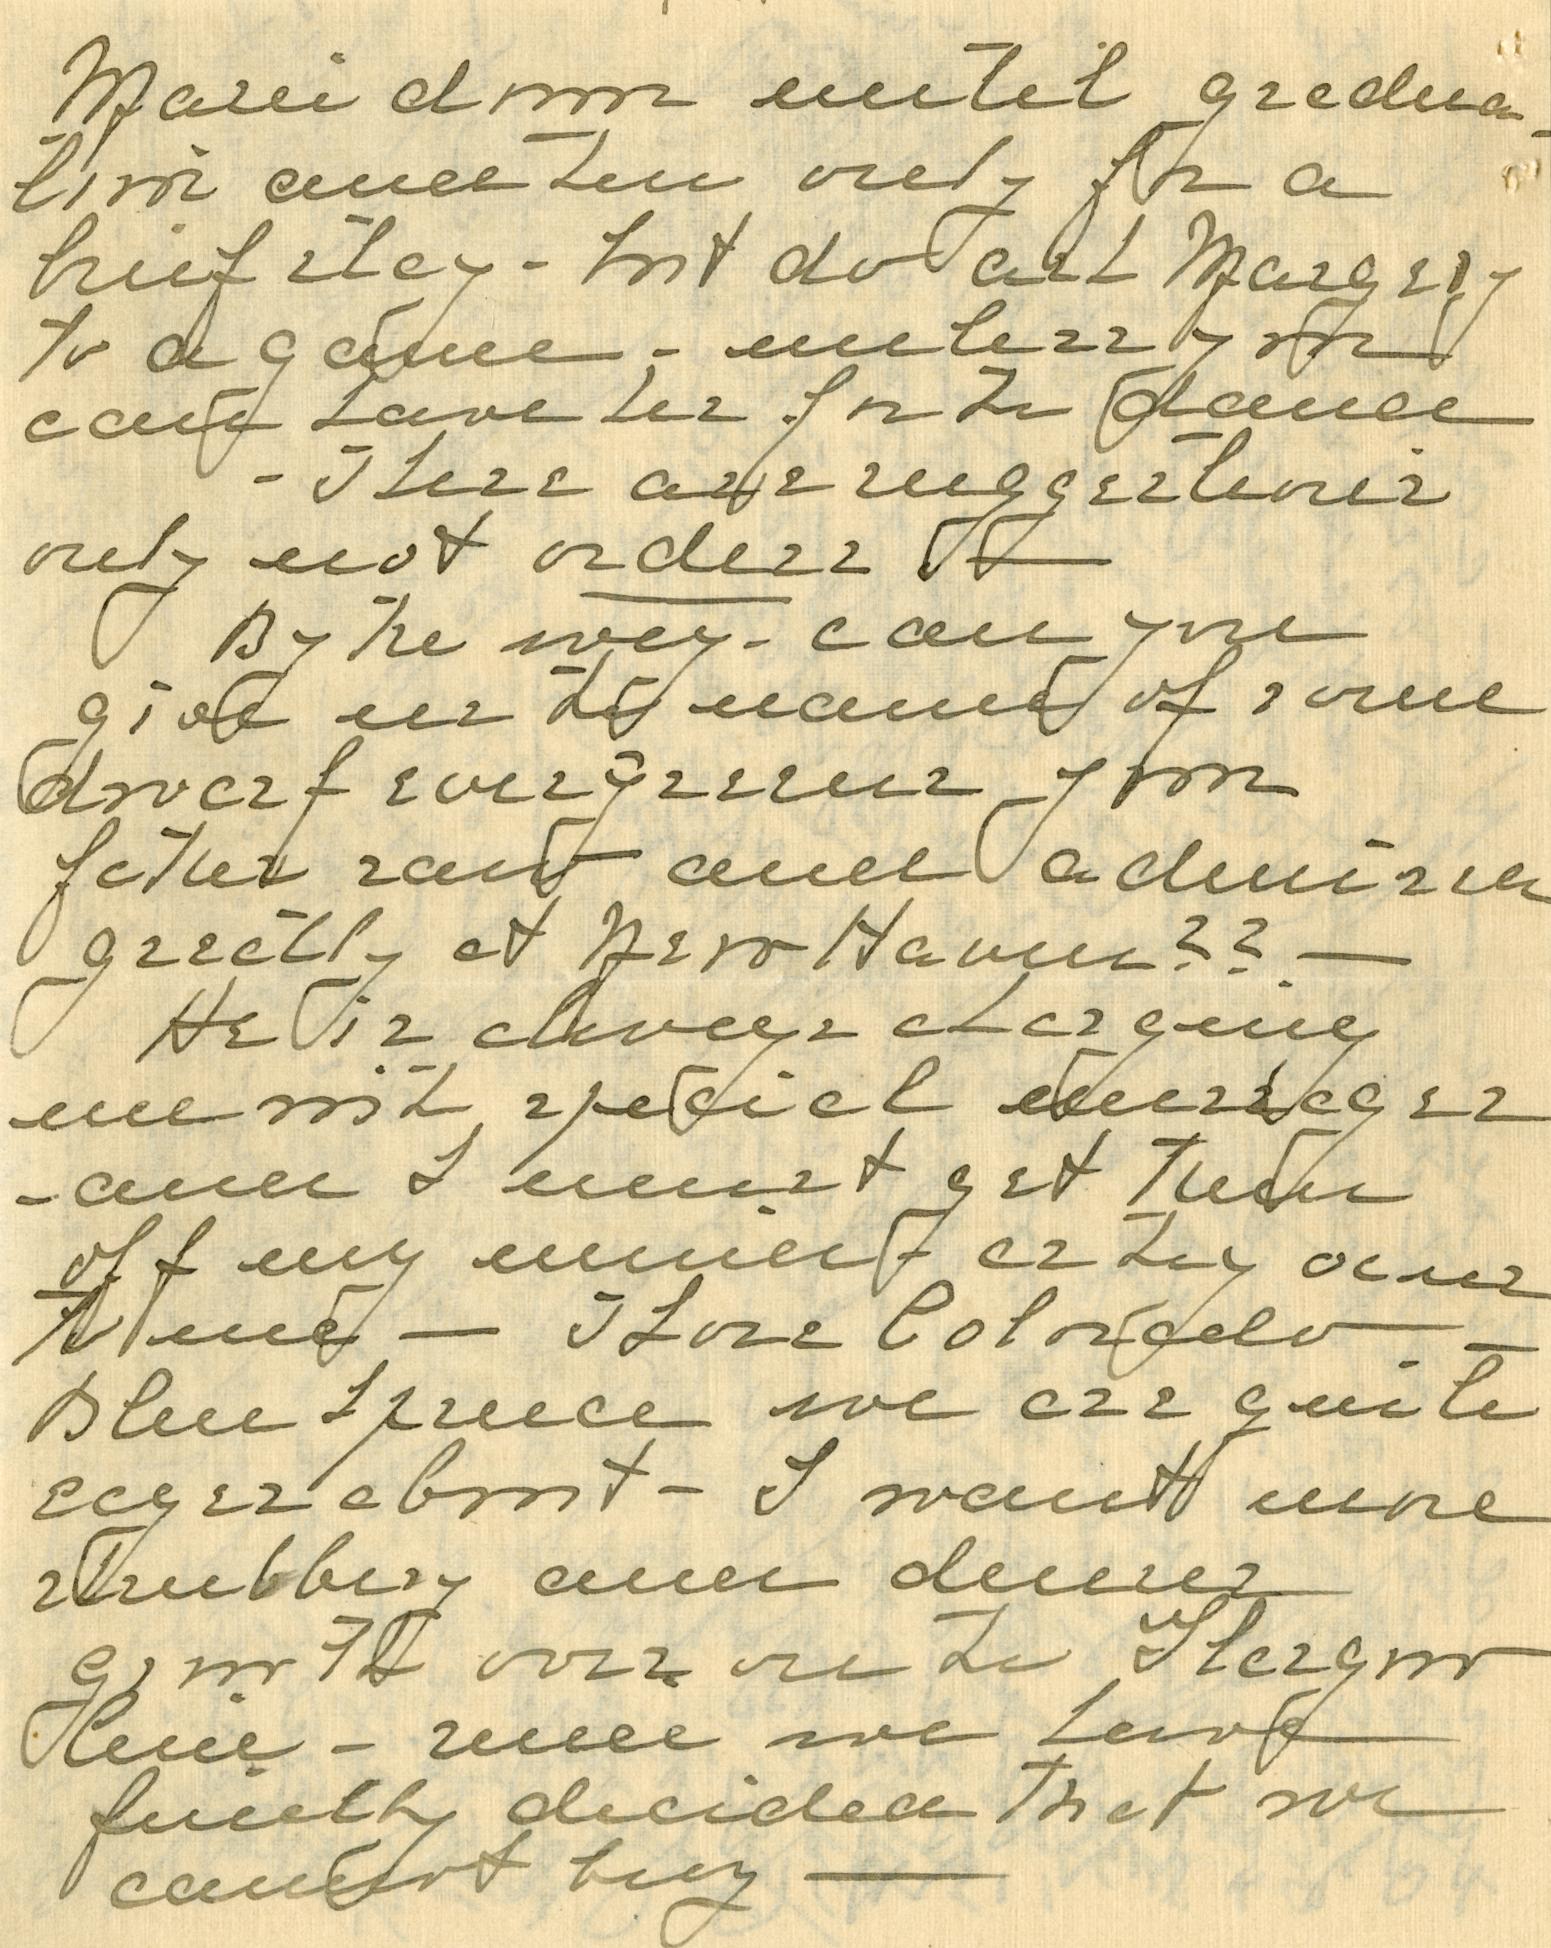 Marie down until gradua-
tion and then only for a
brief stay - but do ask Margery
to a game - unless you
can have her for the dance
- These are suggestions
only not orders
By the way - can you
give me the name of some
dwarf evergreens your
father saw and admired
greatly at New Haven?? —
He is always charging
me with special messages
- and I must get them
off my mind as they come
to me — Those Colorado -
Blue Spruce we are quite
eager about - I want more
shrubbery and denser
growth over on the
line - since we have
finally decided that we
cannot buy —